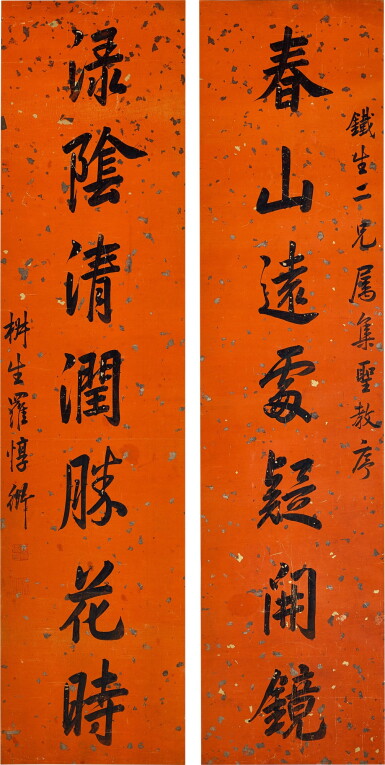 鐵生二兄属集聖教序
春山遠處疑開鏡
渌陰清潤勝花時
椒生羅惇衍